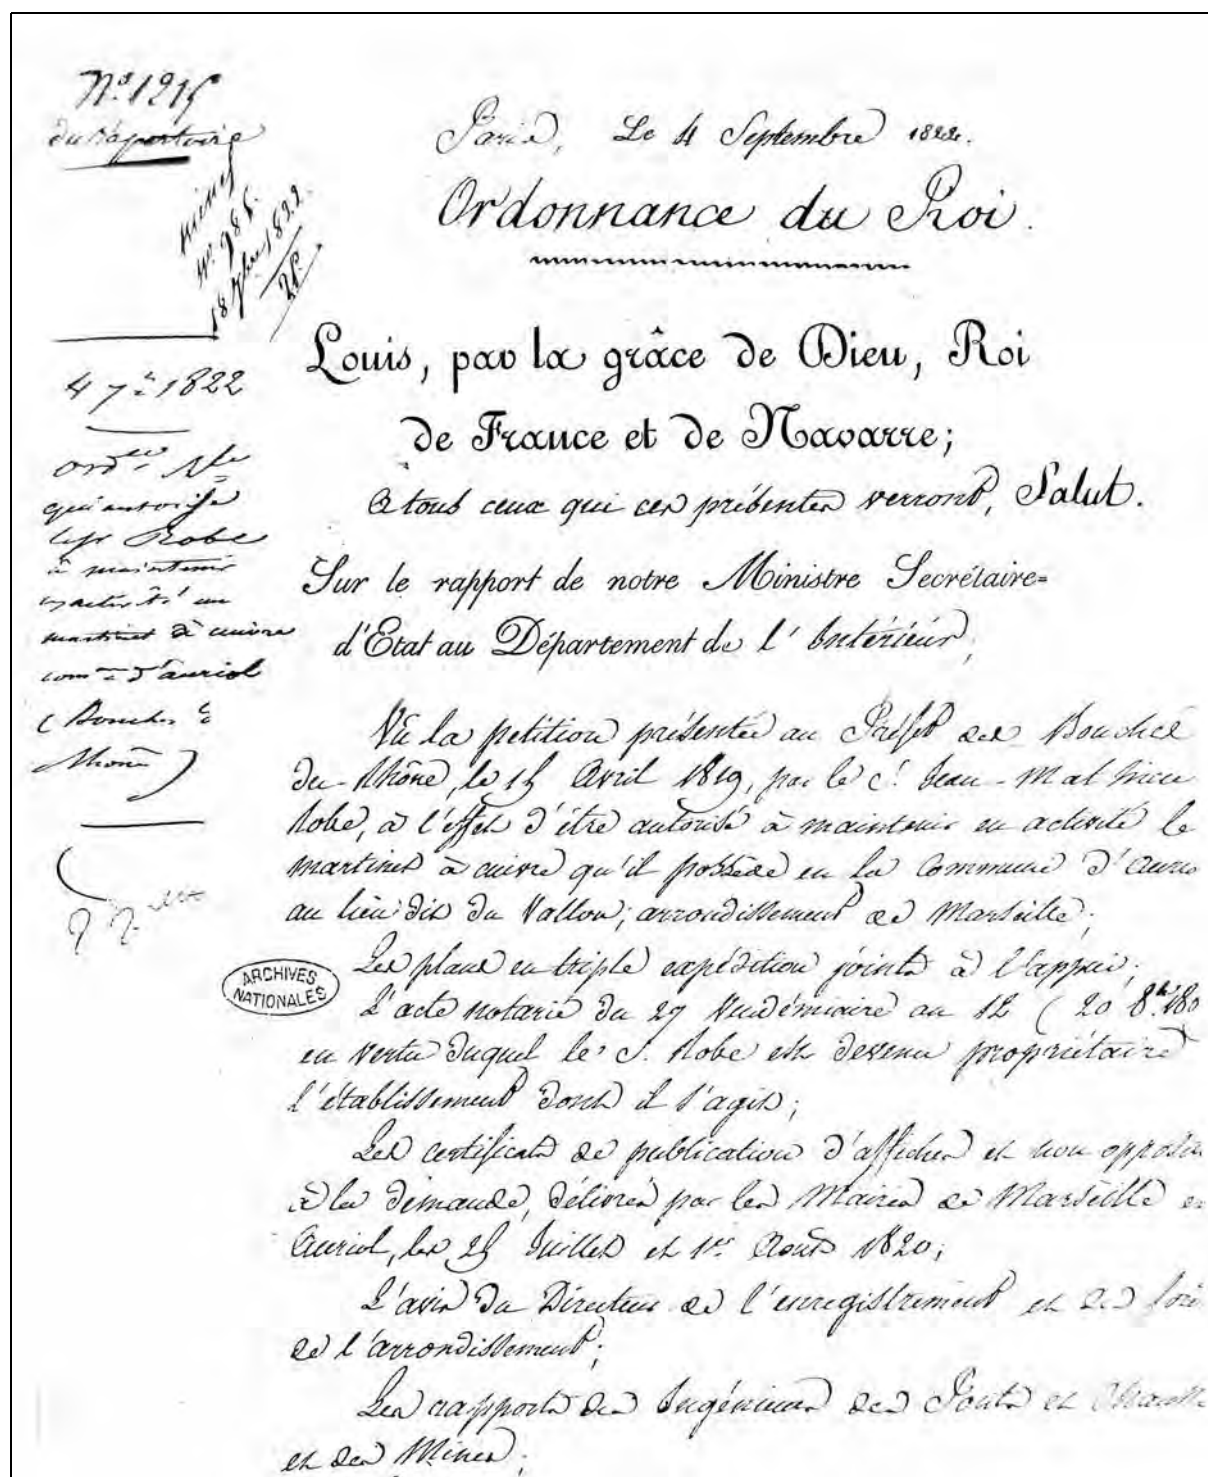 N.º 1215
du Répertoire
Mines
N.º 985.
18 7bre 1822.
4 7.e 1822
ord.ce R.le
qui autorise
le sr Robe
à maintenir
en activité un
martinet à cuivre
com.e d'auriol
(Bouches du
Rhône)
Paris, Le 4 Septembre 1822.
Ordonnance du Roi.
Louis, par la grâce de Dieu, Roi
de France et de Navarre;
A tous ceux qui ces présentes verront, Salut.
Sur le rapport de notre Ministre Secrétaire=
d'Etat au Département de l'Intérieur,
Vû la pétition présentée au Préfet des Bouches
du-Rhône, le 15 Avril 1819, par le S.r Jean-Mathieu
Robe, à l'effet d'être autorisé à maintenir en activité le
martinet à cuivre qu'il possède en la Commune d'Auriol
au lieu dit du Vallon, arrondissement de Marseille;
Les plans en triple expédition joints à l'appui;
ARCHIVES
NATIONALES
L'acte notarié du 27 Vendémiaire an 12 (20 8.bre 180
en vertu duquel le S. Robe est devenu propriétaire
l'établissement dont il s'agit;
Les certificats de publication d'affiches et non opposi
à la demande, délivrés par les Maires de Marseille et
Auriol, les 25 Juillet et 1er Août 1820;
L'avis du Directeur de l'enregistrement et des forê
de l'arrondissement;
Les rapports des Ingénieurs des Ponts et Chaussé
et des Mines;